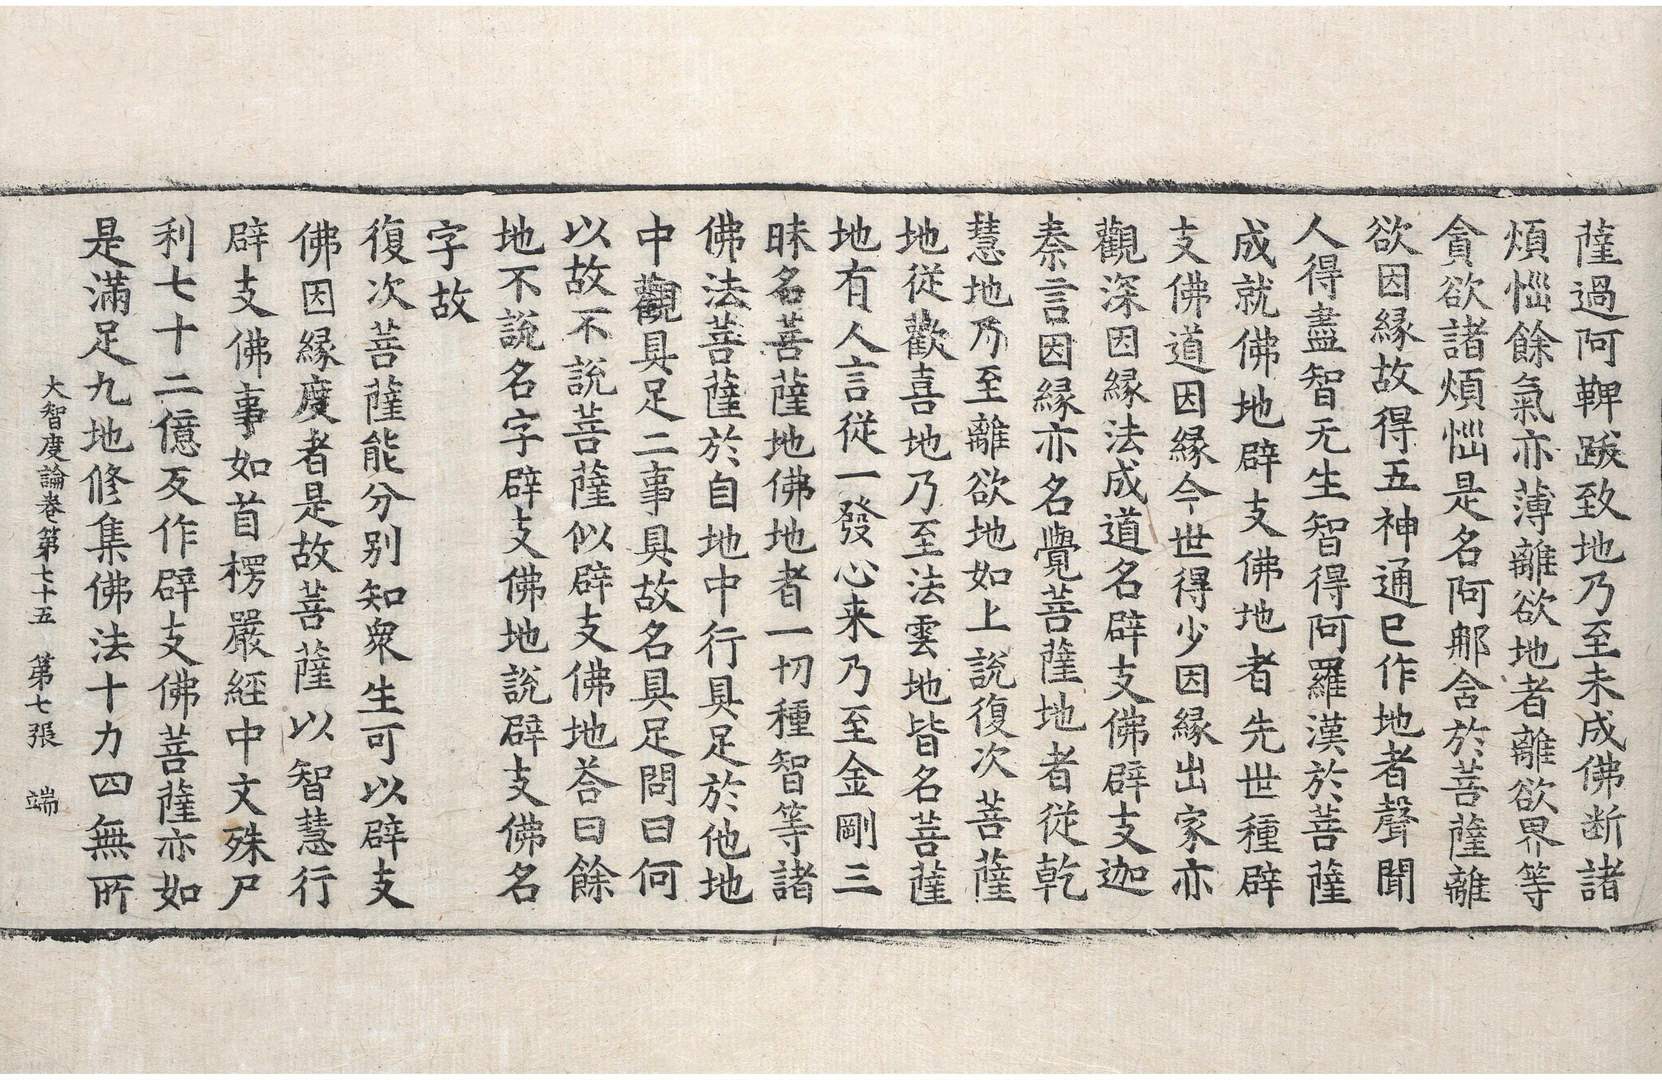 薩過阿鞞跋致地乃至未成佛断諸
煩惱餘氣亦薄離欲地者離欲界等
貪欲諸煩惱是名阿那含於菩薩離
欲因縁故得五神通巳作地者聲聞
人得盡智无生智得阿羅漢於菩薩
成就佛地辟支佛地者先世種辟
支佛道因縁今世得少因縁出家亦
觀深因縁法成道名辟支佛辟支迦
秦言因縁亦名覺菩薩地者從乾
慧地乃至離欲地如上說復次菩薩
地從歡喜地乃至法雲地皆名菩薩
地有人言從一發心来乃至金剛三
昧名菩薩地佛地者一切種智等諸
佛法菩薩於自地中行具足於他地
中觀具足二事具故名具足問曰何
以故不說菩薩似辟支佛地荅曰餘
地不說名字辟支佛地說辟支佛名
字故
復次菩薩能分别知衆生可以辟支
佛因縁度者是故菩薩以智慧行
辟支佛事如首楞嚴經中文殊尸
利七十二億反作辟支佛菩薩亦如
是滿足九地修集佛法十力四無所
大智度論卷第七十五　第七張　端